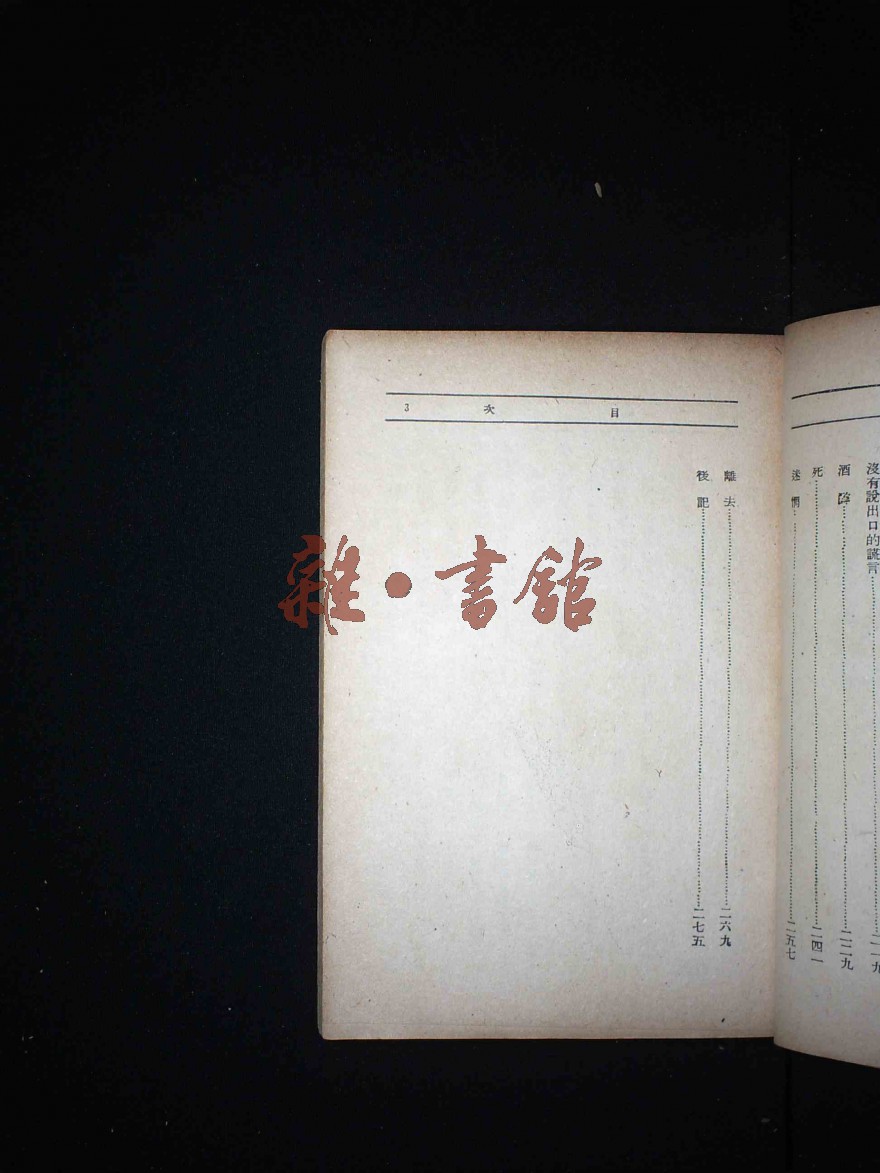 沒有說出口的謊言………二一九
酒 ………二二九
死………二四一
迷惘………二五七
目 次 3
離去………二六九
後記………二七五
雜·書館